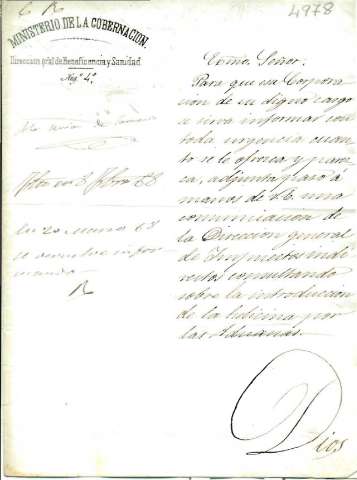 4978
MINISTERIO DE LA GOBERNACION.
Direccion gral de Beneficencia y Sanidad
Negº 4º
Exmo. Señor:
Para que esa Corpora
cion de su digno cargo
se sirva informar con
toda urgencia cuan
to se le ofrezca y parez
ca, adjunta paso a
manos de V.E. una
comunicacion de
la Direccion general
de Impuestos indi
rectos consultando
sobre la introduccion
de la por
las Aduanas.
Dios
en 20 Marzo 68
se devuelve infor
mando